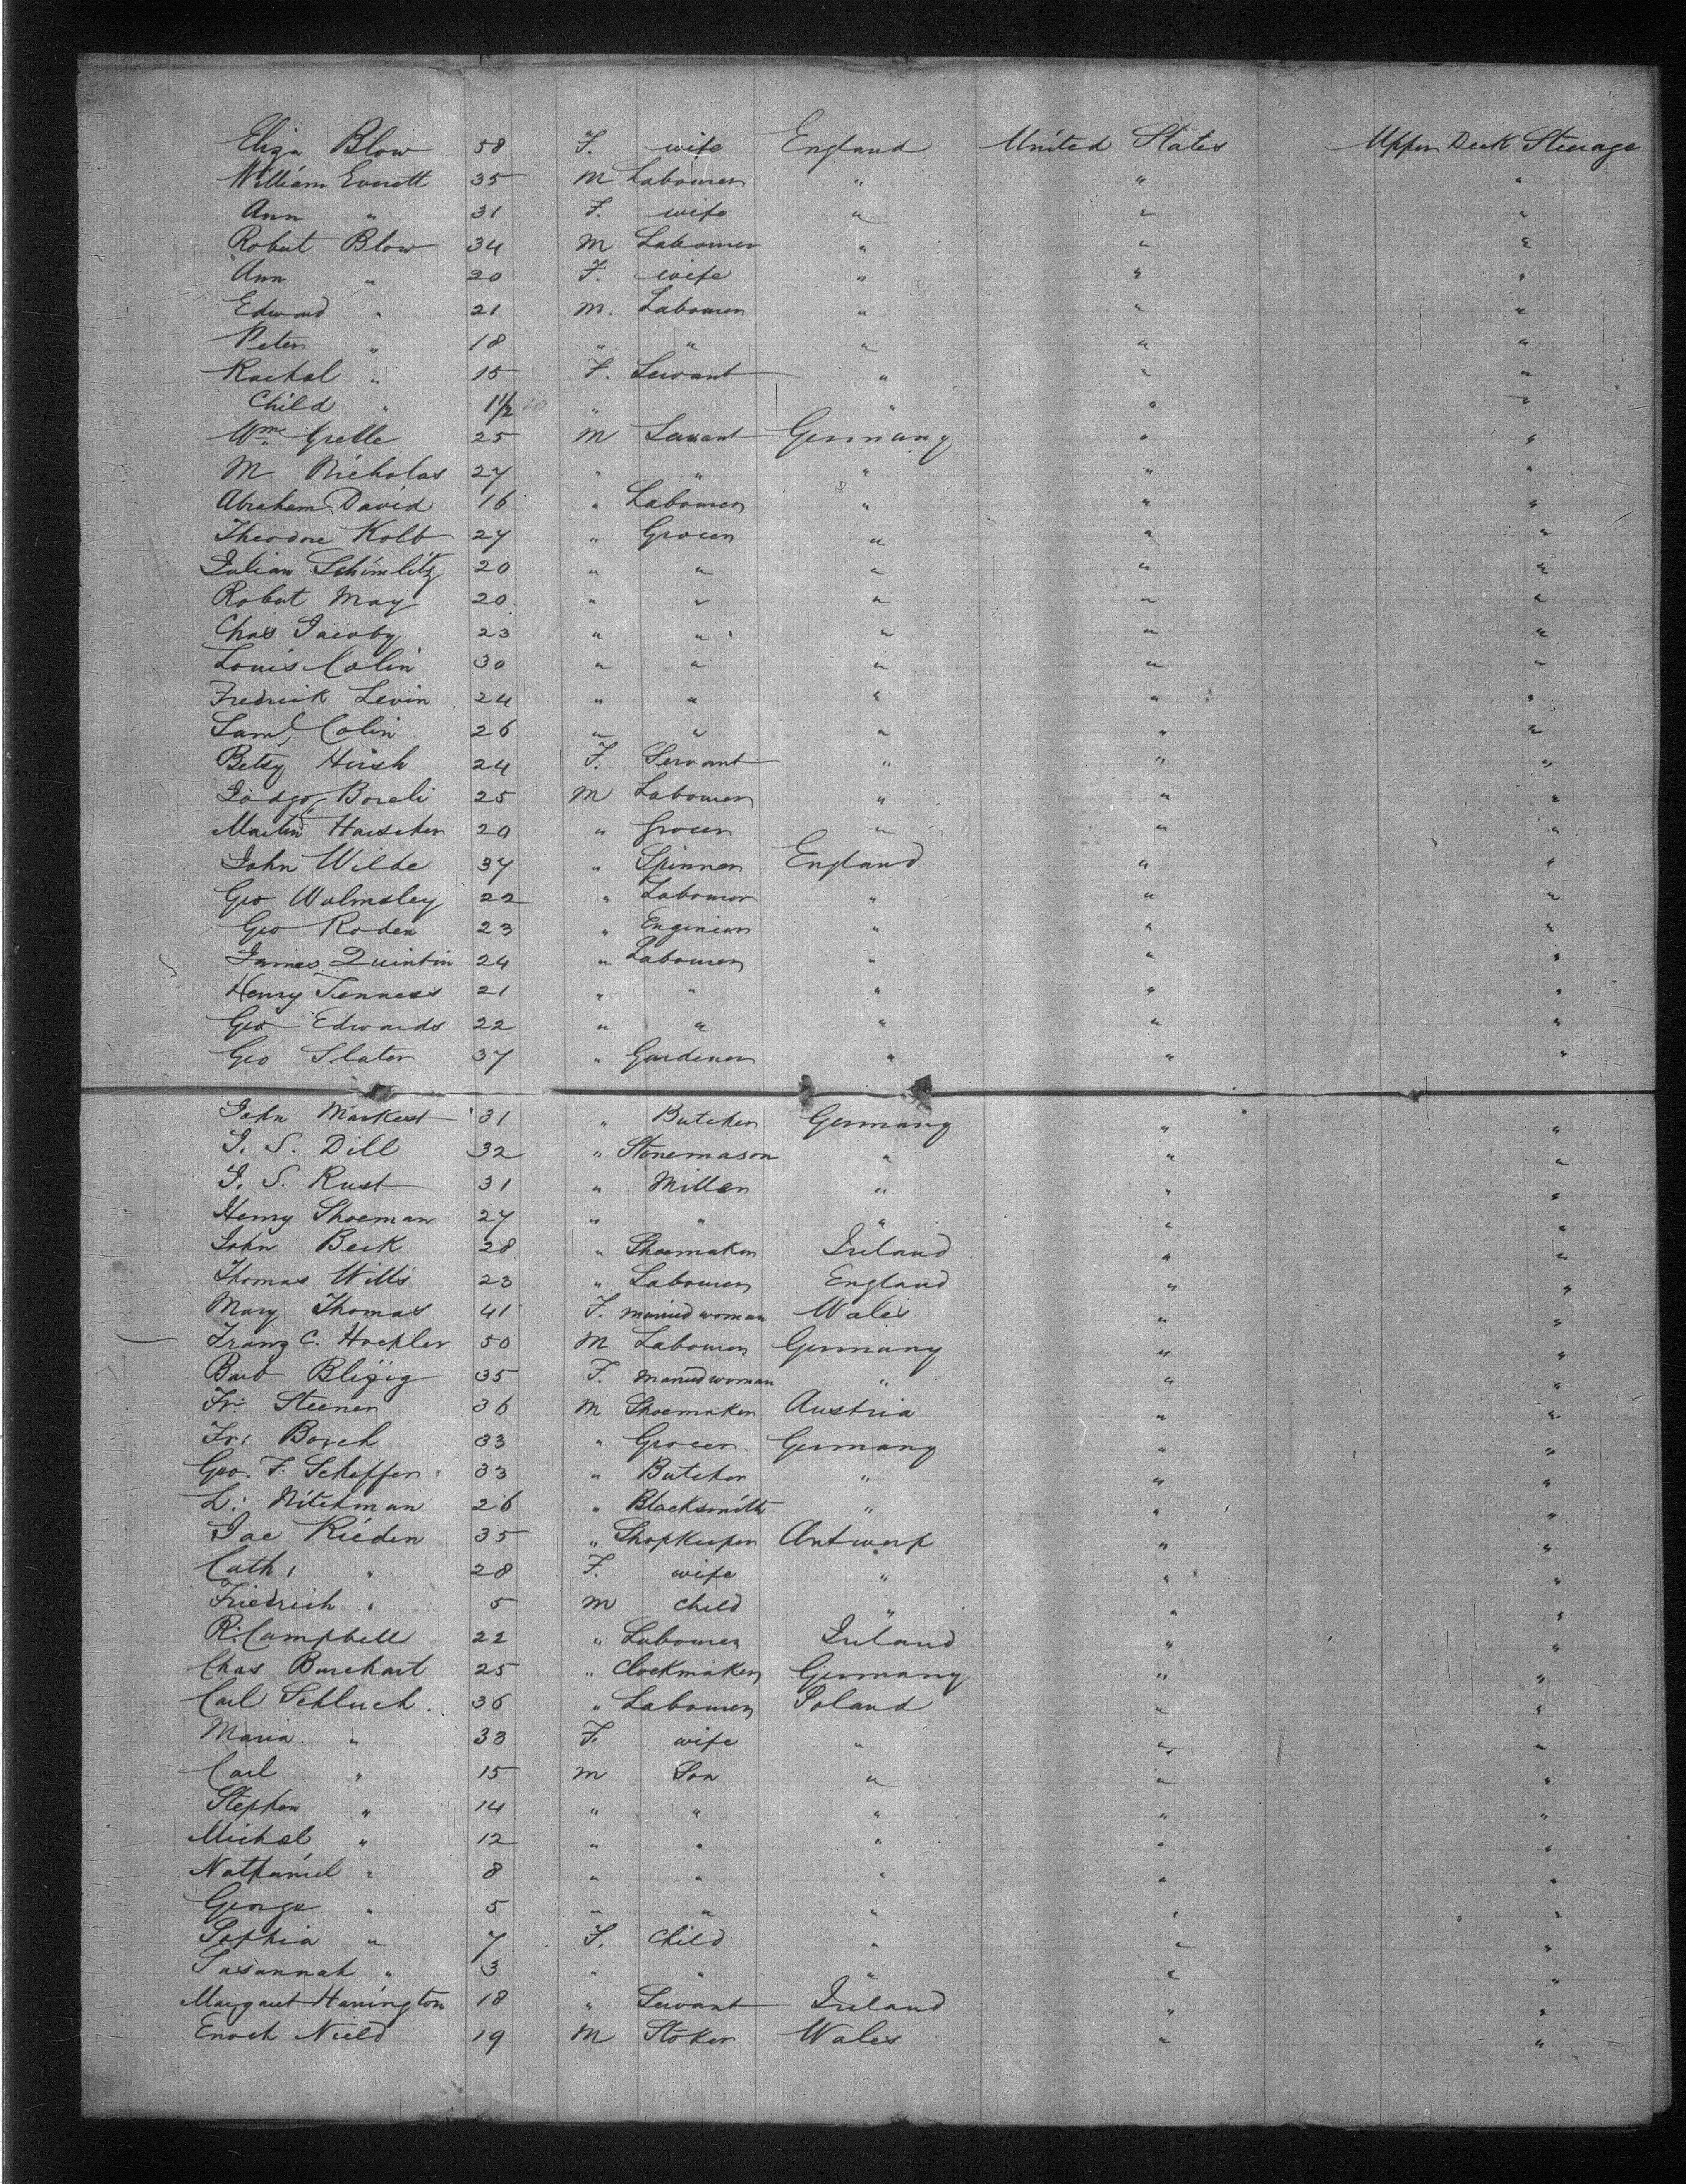 Eliza Blow 58 F. wife England United States Upper Deck Steerage
William Everett 35 M Labourer " " "
Ann " 31 F. wife " " "
Robert Blow 34 M Labourer " " "
Ann " 20 F. wife " " "
Edward " 21 M. Labourer " " "
Peter " 18 " " " " "
Rachel " 15 F. Servant " " "
Child " 1 1/2 10 " " " "
Wm Grelle 25 M Servant Germany " "
M Nicholas 27 " " " " "
Abraham David 16 " Labourer " " "
Theodore Kolb 27 " Grocer " " "
Julian Schimlitz 20 " " " " "
Robert May 20 " " " " "
Chas Jacoby 23 " " " " "
Louis Colin 30 " " " " "
Fredrick Levin 24 " " " " "
Saml Colin 26 " " " " "
Betsy Hirsh 24 F. Servant " " "
Boreli 25 M Labourer " " "
Martin 20 " Grocer " " "
John Wilde 37 " Spinner England " "
Geo Walmsley 22 " Labourer " " "
Geo Roden 23 " Enginier " " "
James Quintin 24 " Labourer " " "
Henry Jenness 21 " " " " "
Geo Edwards 22 " " " " "
Geo Slater 37 " Gardener " " "
John Markert 31 " Butcher Germany " "
J. S. Dill 32 " Stonemason " " "
J. S. Rust 31 " Miller " " "
Henry Shoeman 27 " " " " "
John Beck 28 " Shoemaker Ireland " "
Thomas Wills 23 " Labourer England " "
Mary Thomas 41 F. married woman Wales " "
Franz C. Hoepler 50 M Labourer Germany " "
Barb 35 F. married woman " " "
Fr: Steener 36 M Shoemaker Austria " "
Fr: Borch 33 " Grocer. Germany " "
Geo. F. Scheffer 33 " Butcher " " "
L: Nitchman 26 " Blacksmith " " "
Jac Rieden 35 " Shopkeeper Antwerp " "
Cath: " 28 F. wife " " "
Friedrich " 5 M child " " "
R. Campbell 22 " Labourer Ireland " "
Chas Burchart 25 " Clockmaker Germany " "
Carl Schluch. 36 " Labourer Poland " "
Maria " 33 F. wife " " "
Carl " 15 M Son " " "
Stephen " 14 " " " " "
Michel " 12 " " " " "
Nathaniel " 8 " " " " "
George " 5 " " " " "
Sophia " 7 F. Child " " "
Susannah " 3 " " " " "
Margaret Harrington 18 " Servant Ireland " "
Enoch Nield 19 M Stoker Wales " "